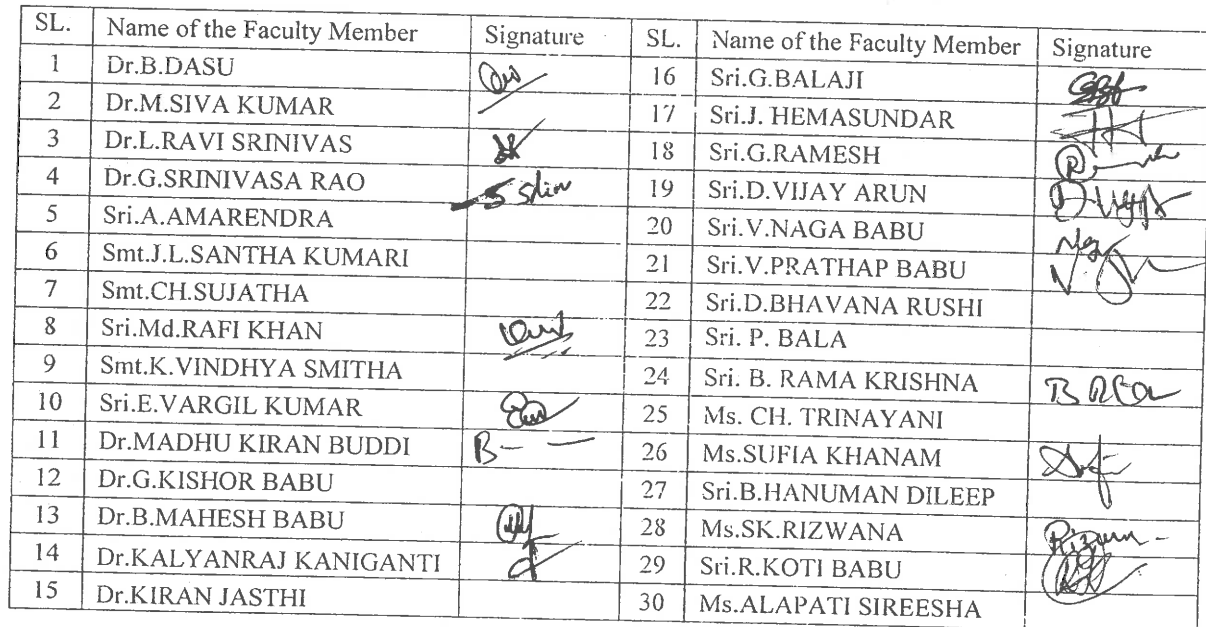 SL. Name of the Faculty Member Signature SL. Name of the Faculty Member Signature
1 Dr.B.DASU 16 Sri.G.BALAJI
2 Dr.M.SIVA KUMAR 17 Sri.J. HEMASUNDAR
3 Dr.L.RAVI SRINIVAS 18 Sri.G.RAMESH
4 Dr.G.SRINIVASA RAO 19 Sri.D.VIJAY ARUN
5 Sri.A.AMARENDRA 20 Sri.V.NAGA BABU
6 Smt.J.L.SANTHA KUMARI 21 Sri.V.PRATHAP BABU
7 Smt.CH.SUJATHA 22 Sri.D.BHAVANA RUSHI
8 Sri.Md.RAFI KHAN 23 Sri. P. BALA
9 Smt.K.VINDHYA SMITHA 24 Sri. B. RAMA KRISHNA
10 Sri.E.VARGIL KUMAR 25 Ms. CH. TRINAYANI
11 Dr.MADHU KIRAN BUDDI 26 Ms.SUFIA KHANAM
12 Dr.G.KISHOR BABU 27 Sri.B.HANUMAN DILEEP
13 Dr.B.MAHESH BABU 28 Ms.SK.RIZWANA
14 Dr.KALYANRAJ KANIGANTI 29 Sri.R.KOTI BABU
15 Dr.KIRAN JASTHI 30 Ms.ALAPATI SIREESHA